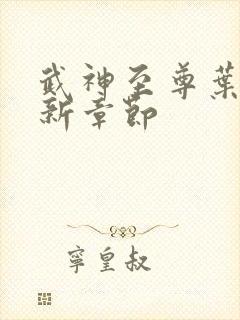 武神至尊葉
新章節
寧皇叔